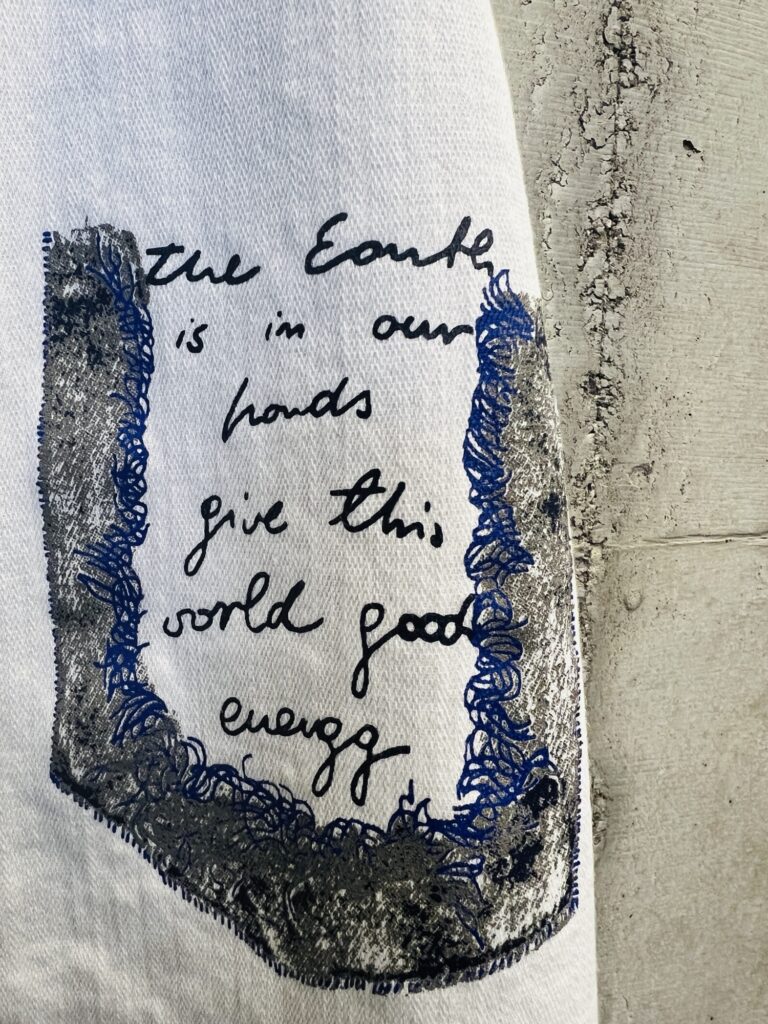 the Earth
is in our
hands
give this
world good
energy